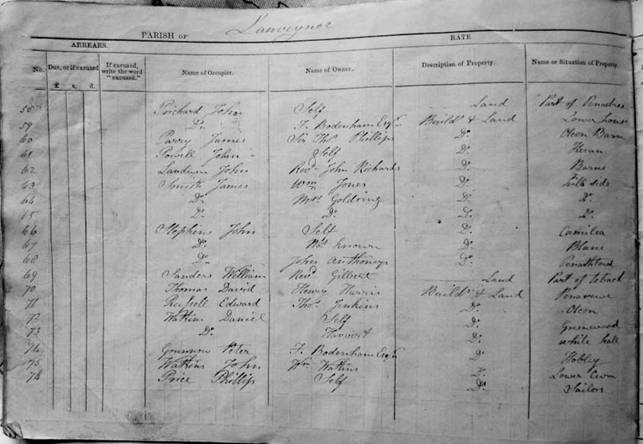 PARISH OF Lanveynor RATE
ARREARS.
No. Due, or if excused If excused, write the word "excused." Name of Occupier. Name of Owner. Description of Property. Name or Situation of Property
£ s. d.
58 Prichard John Self Land Part of
59 Do. F. Bodenham Esqr Buildgs & Land Lower house
60 Parry James Sir Thos Phillips Do. Olcon Barn
61 Powell John Self Do.
62 John Revd John Richards Do. Barns
63 Smith James Wm Jones Do. hill side
64 Do. Mrs Goldring Do. Do.
15 Do. Do. Do. Do.
66 Stephens John Self Do.
67 Do. Not known Do. Blane
68 Do. John Anthoney Do.
69 Sanders William Revd Gilbert Land Part of
70 Thomas David Henry Harris Buildgs & Land
71 Russell Edward Thos Jenkins Do. Olcon
72 Watkins Daniel Self Do. Greenwood
73 Do. Do. white hall
74 Peter F. Bodenham Esqr Do.
75 Watkins John Wm Watkins Do. Lower Cwm
76 Price Phillip Self Do. Sailors